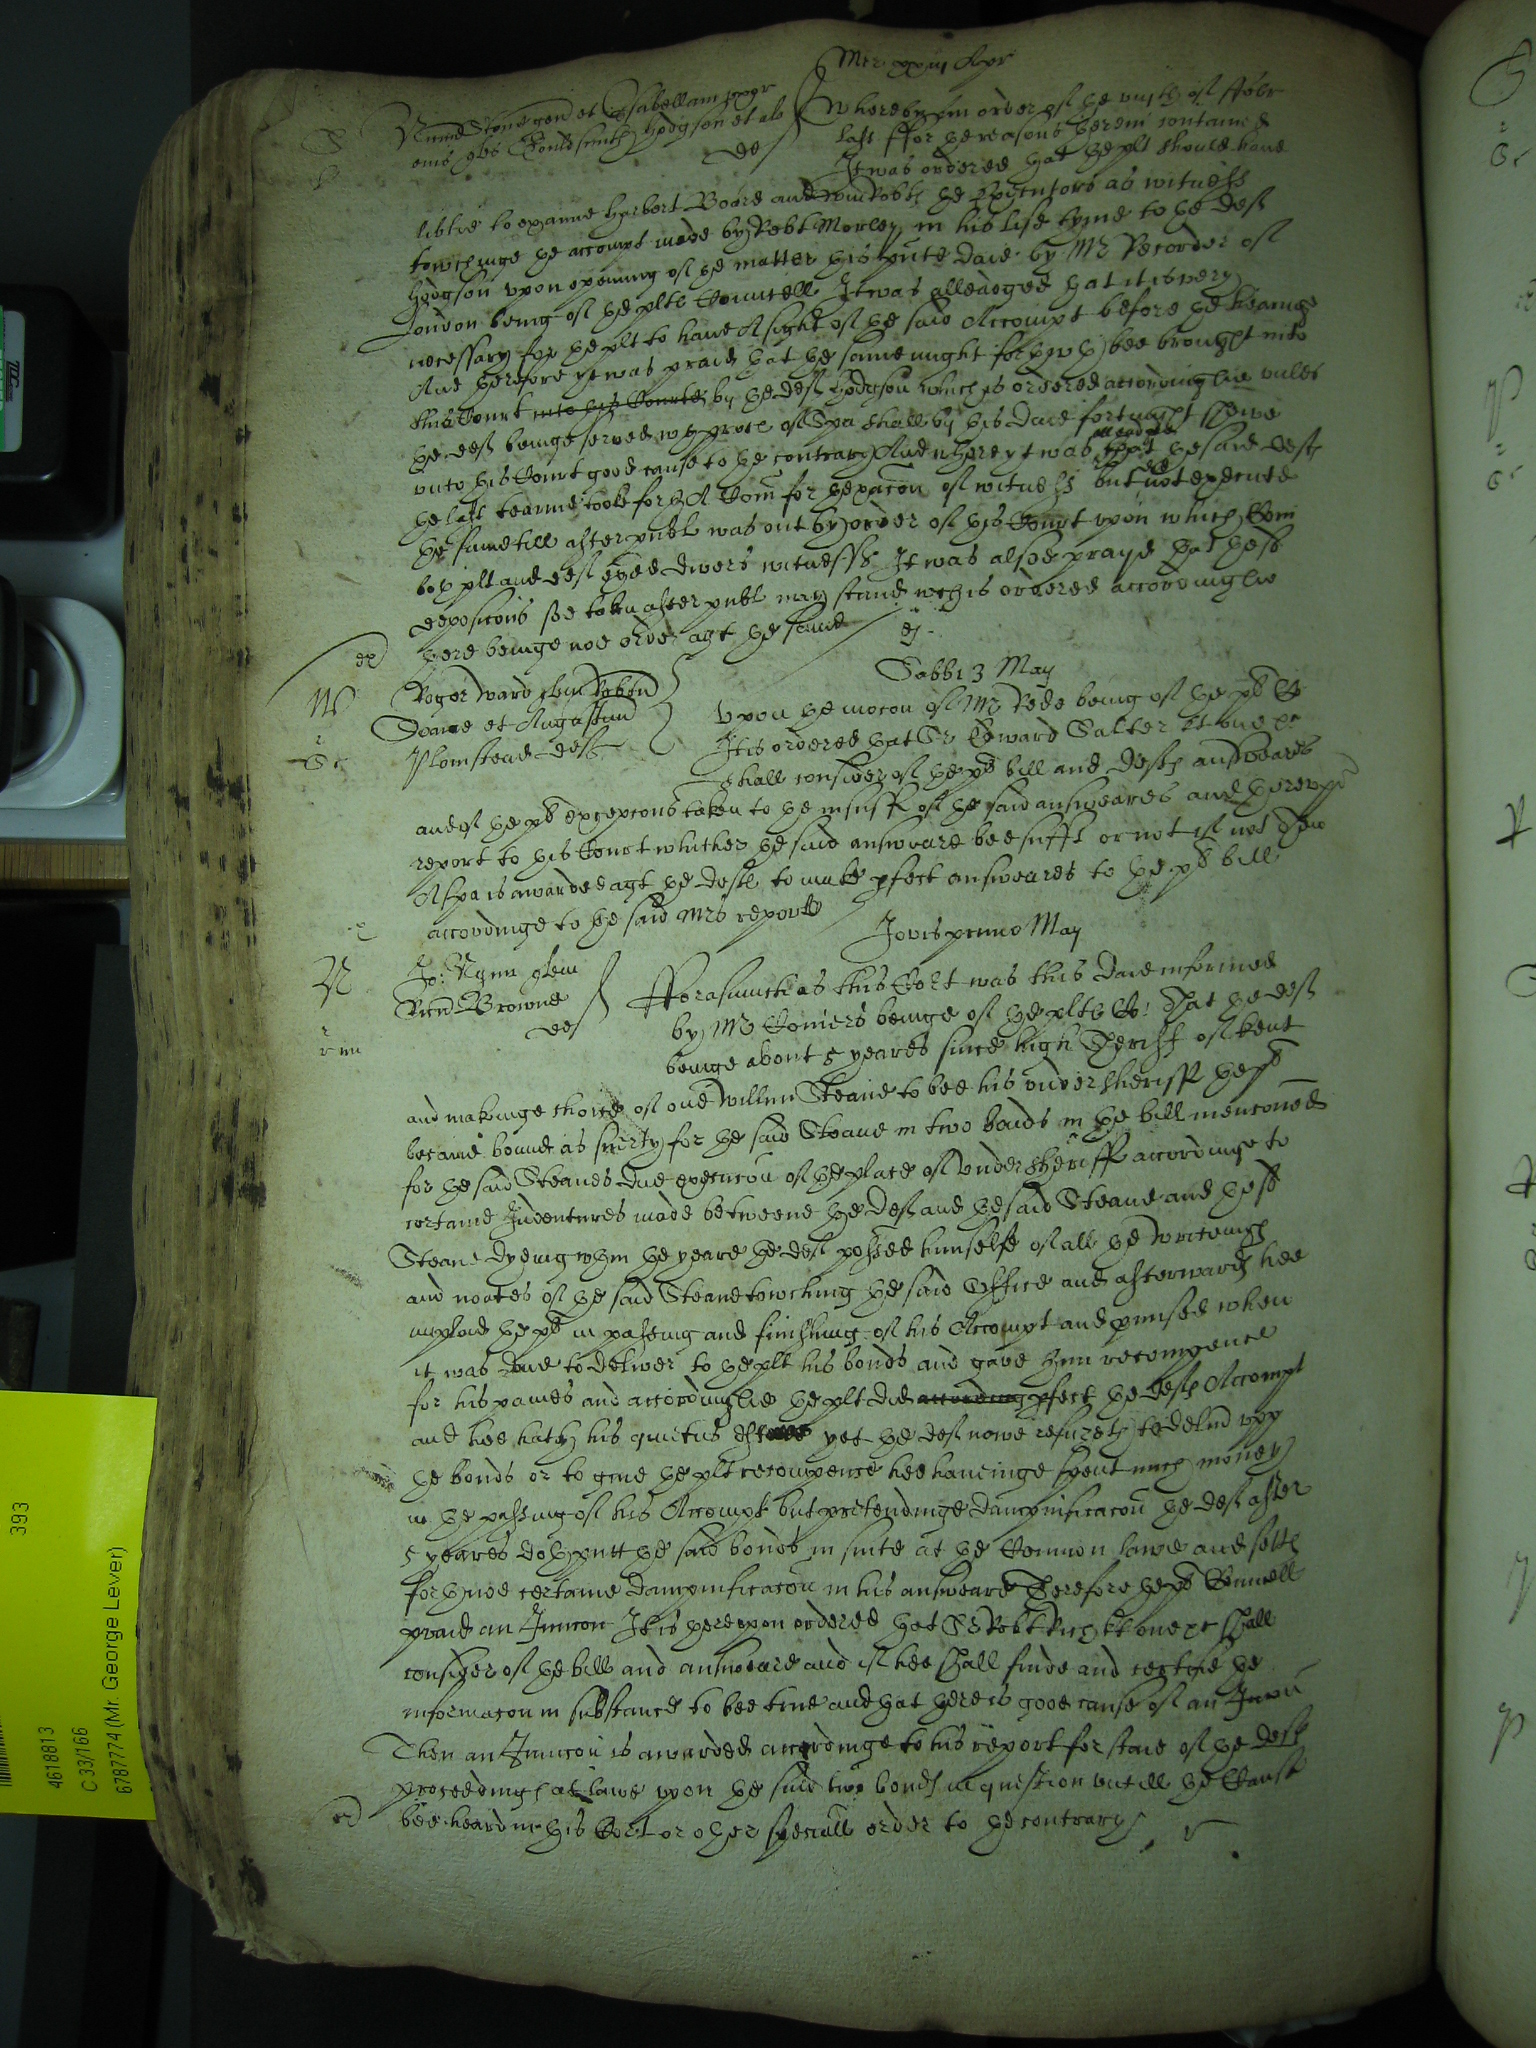 Mer xxiii Apr
Stone gen et Isabellam uxor
eius ples Gouldsmith Hodgson et al
def
Whereby an order of the viijth of Febr
last ffor the reasons therein contained
It was ordered that the plt should have
libtie to examine Herbert Boare and the Executors as witness
towchinge the accompt made by Robt Morley in his life tyme to the def
Hodgson upon opening of the matter this pnte daie by Mr Recorder of
London being of the plts Councell It was alleadged that it is very
necessary for the plt to have A sight of the said Accompt before the hearinge
And therefore yt was praid that the same might forthwth bee brought into
this Court into this Courte by the def Hodgson which is ordered accordinglie unles
the def beinge served wth proces of Spa shall by this daie fortnight shewe
unto this Court good cause to the contrary And where yt was alleadged that the said defts
the last tearme tooke forth A Com for thexacon of witness but did not execute
the same till after publ was out by order of this Court upon which Com
both plt and def exed divers witnesses It was alsoe prayd that the sd
deposicons soe taken after publ may stand wch is ordered accordinglie
there beinge noe order agt the same
ex
Sabbi 3 May
W
Roger Ward plen Robtu
Doave et Augustin
Plomstead defts
Upon the mocon of Mr Rede being of the pls Co
It is ordered that Sr Edward Salter kt one &c
shall consider of the pls bill and defts answeares
and of the pls excepcons taken to the insuff of the said answeares and thereupp
report to this Court whether the said answeare bee sufft or not if not then
A Spa is awarded agt the defts to make pfect answeares to the pls bill
accordinge to the said Mrs reporte
Jovis primo May
N
Jo: Nynn plen
Ricd Browne
def
Fforasmuch as this Cort was this daie informed
by Mr Coniers beinge of the plts Co: That the def
beinge about 5 yeares since high Sheriff of Kent
and makinge choice of one Willm Steane to bee his undersheriff the pls
became bound as suerty for the said Steane in two bonds in the bill menconed
for the said Steanes due execucon of the place of undersheriff accordinge to
certaine Indentures made betweene the def and the said Steane and the sd
Steane dyeing wthin the yeare the def possed himselfe of all the writeings
and noates of the said Steane towching the said Office and afterwards hee
imploied the pls in passing and finishing of his Accompt and pmised when
it was done to deliver to the plt his bonds and gave him recompence
for his paines and accordinglie the plt did according pfect the defts Accompt
and hee hath his quietus est yet the def nowe refuseth to delivd upp
the bonds or to give the plt recompence hee haveinge spent much money
in the passing of his Accompt but pretendinge dampnificacon the def after
5 yeares doth putt the said bonds in suite at the Common lawe and setts
forth noe certaine dampnificacon in his answeare Therefore the pls Councell
praid an Inincon It is thereupon ordered that Sr Robt Rich kt one &c shall
consider of the bill and answeare and if hee shall finde and certifie the
informacon in substance to bee true and that there is good cause of an Inincon
Then an Inincon is awarded accordinge to his report for staie of the defts
proceedings at lawe upon the said two bonds in question untill the Cause
bee heard in this Cort or other speciall order to the contrary
ed
393
4618813
C 33/166
6787774 (Mr. George Lever)